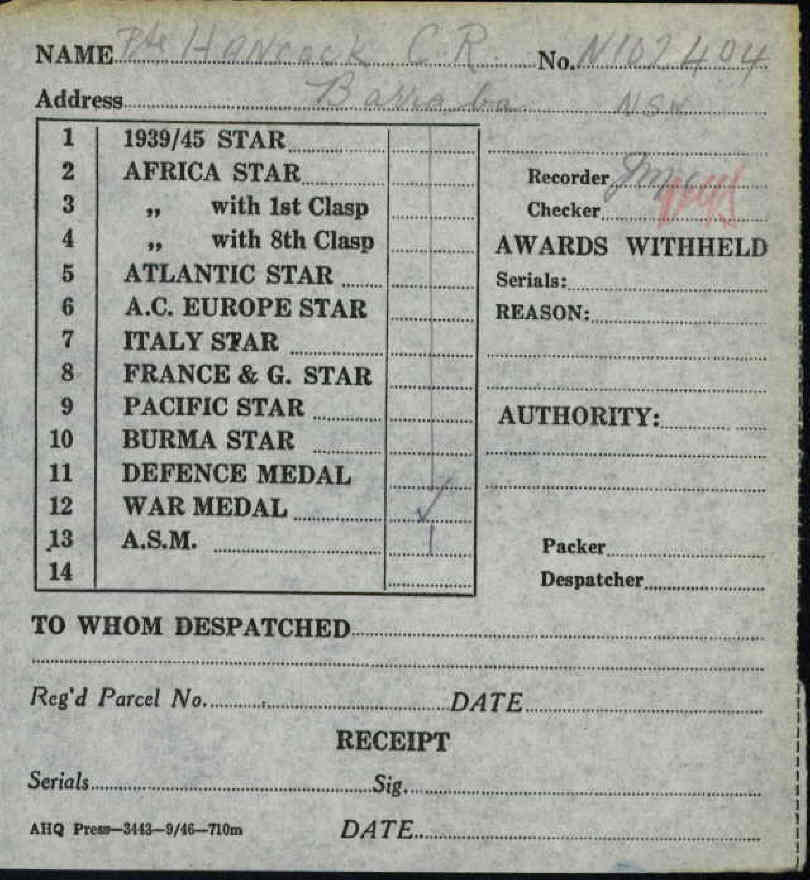 NAME Pte Hancock C.R. No. N102404
Address Barraba NSW
1 1939/45 STAR
2 AFRICA STAR
3 „ with 1st Clasp
4 „ with 8th Clasp
5 ATLANTIC STAR
6 A.C. EUROPE STAR
7 ITALY STAR
8 FRANCE & G. STAR
9 PACIFIC STAR
10 BURMA STAR
11 DEFENCE MEDAL
12 WAR MEDAL ✓
13 A.S.M.
14
Recorder
Checker
AWARDS WITHHELD
Serials:
REASON:
AUTHORITY:
Packer
Despatcher
TO WHOM DESPATCHED
Reg'd Parcel No. DATE
RECEIPT
Serials Sig.
AHQ Press—3443—9/46—710m DATE